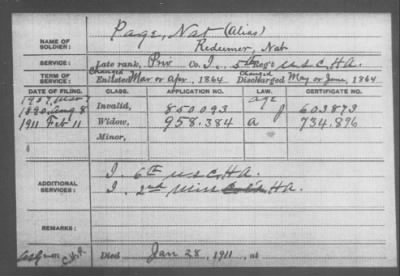 NAME OF SOLDIER: Paige, Nat (Alias)
Redeemer, Nat
SERVICE: Late rank, Priv Co. I, 5th Reg't U.S.C.H.A.
TERM OF SERVICE: Enlisted Mar or Apr, 1864 Discharged May or June, 1864
DATE OF FILING. CLASS. APPLICATION NO. LAW. CERTIFICATE NO.
1907, Mar 7 age
1890 Aug 8 Invalid, 850093 J 603873
1911 Feb 11 Widow, 958.384 a 734.896
Minor,
ADDITIONAL SERVICES: I. 6th U.S.C.H.A.
I. 2nd Miss H.A.
REMARKS:
C.H.A. Died Jan 28, 1911, at